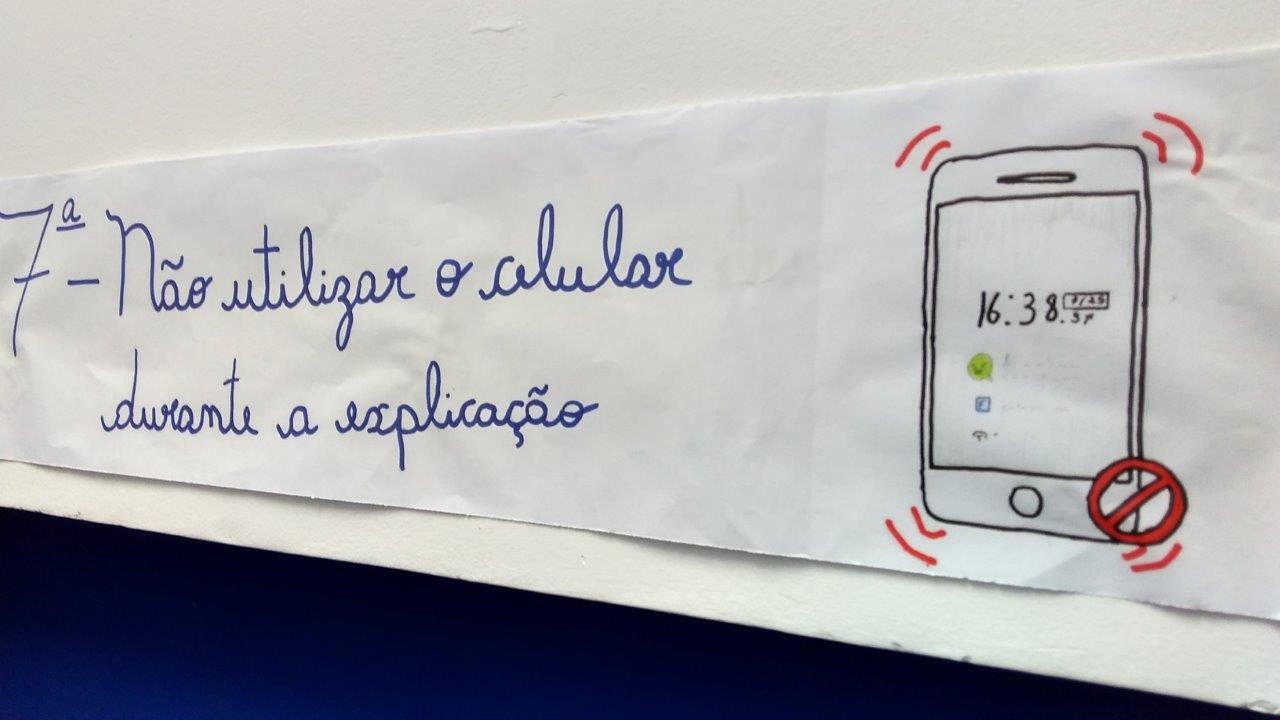 7ª - Não utilizar o celular
durante a explicação
16:38